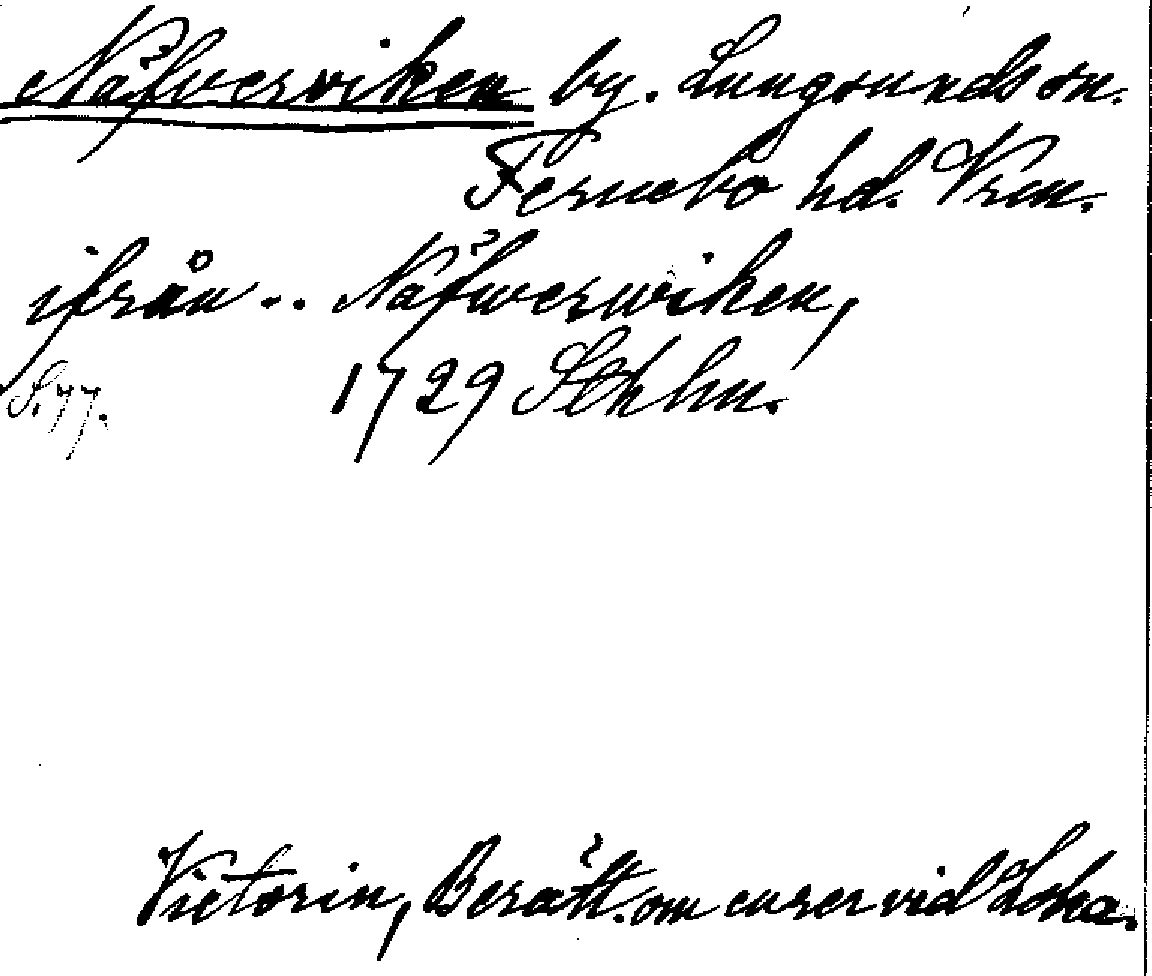 Näfverviken by. Lungsunds sn.
Fernebo hd. Vrm.
ifrån .. Näfwerwiken,
S. 77. 1729 Sthlm.
Victorin, Berätt. om curer vid Loka.